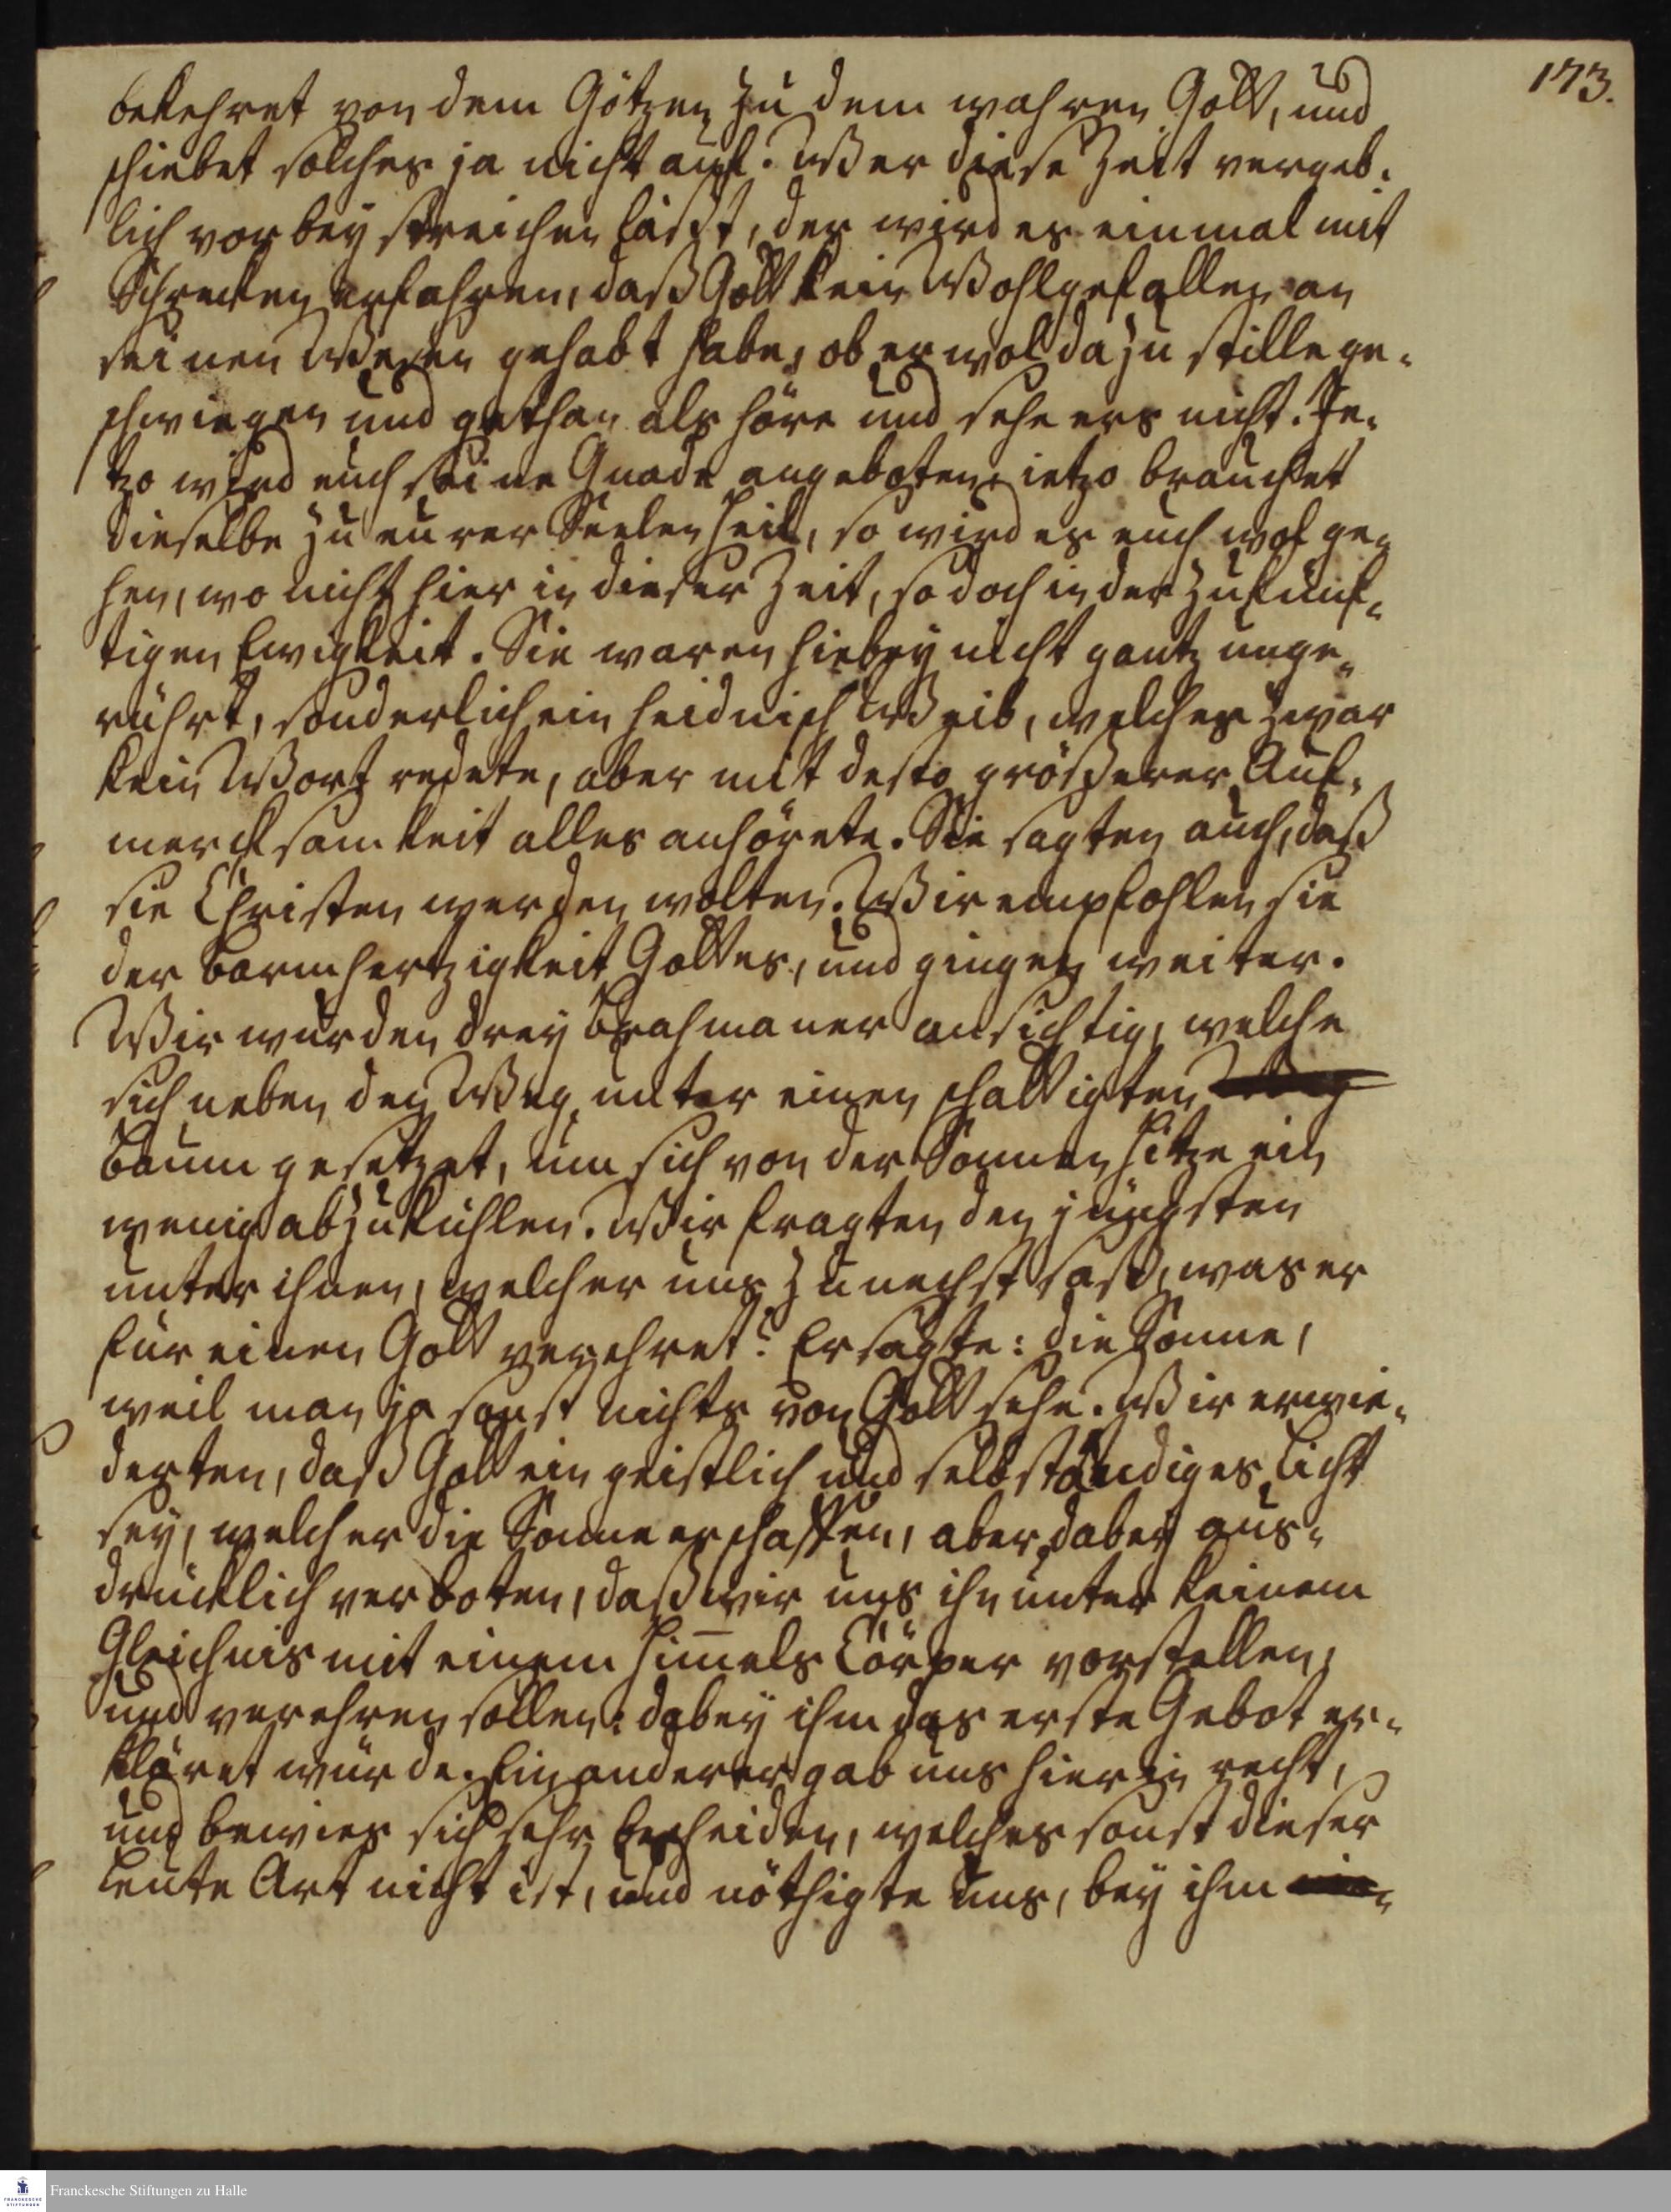 173.
bekehret von dem Götzen zu dem wahren Gott, und
schiebet solches ja nicht auf. Wer diese Zeit vergeb-
lich vorbey streichen läßt, der wird es einmal mit
Schrecken erfahren, daß Gott kein Wohlgefallen an
seinen Wesen gehabt habe, ob er wol dazu stille ge-
schwiegen und gethan als höre und sehe ers nicht. Je-
tzo wird euch seine Gnade angeboten, ietzo brauchet
dieselbe zu eurer Seelen Heil, so wird es euch wol ge-
hen, wo nicht hier in dieser Zeit, so doch in der zukünf-
tigen Ewigkeit. Sie waren hiebey nicht gantz unge-
rührt, sonderlich ein heidnisch Weib, welches zwar
kein Wort redete, aber mit desto größerer Auf-
mercksamkeit alles anhörete. Sie sagten auch, daß
sie Christen werden wolten. Wir empfohlen sie
der Barmhertzigkeit Gottes, und gingen weiter.
Wir wurden drey Brahmaner ansichtig, welche
sich neben den Weg unter einen schattigten
Baum gesetzet, um sich von der Sonnen Hitze ein
wenig abzukühlen. Wir fragten den jüngsten
unter ihnen, welcher uns zunechst saß, was er
für einen Gott verehret? Er sagte: die Sonne,
weil man ja sonst nichts von Gott sehe. Wir erwie-
derten, daß Gott ein geistlich und selbständiges Licht
sey, welcher die Sonne erschaffen, aber dabey aus-
drücklich verboten, daß wir uns ihn unter keinem
Gleichnis mit einem Him̄els Cörper vorstellen,
und verehren sollen: dabey ihm das erste Gebot er-
kläret wurde. Ein anderer gab uns hierin recht,
und bewies sich sehr bescheiden, welches sonst dieser
Leute Art nicht ist, und nöthigte uns, bey ihm
Franckesche Stiftungen zu Halle